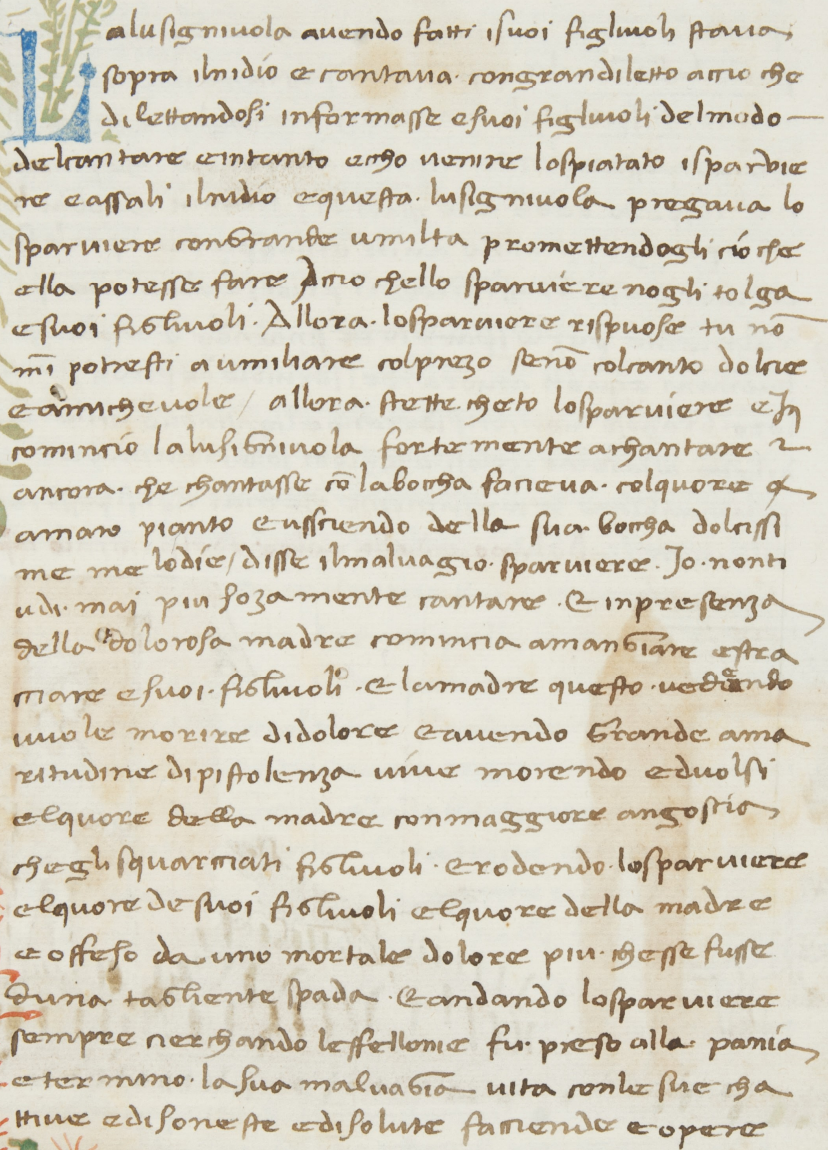 La lusigniuola avendo fatti isuoi figliuoli stava
sopra ilnidio e cantava · congrandiletto accio che
dilettandosi informasse esuoi figliuoli delmodo —
delcantare eintanto eccho venire lospiatato isparvie
re eassali ilnidio equesta · lusigniuola pregava lo
sparviere conGrande umilta promettendogli ciò che
ella potesse fare Accio chello sparviere nogli tolga
esuoi figliuoli · Allora · losparviere rispuose tu nō
mi potresti aumiliare colprezo senō colcanto dolcie
eamichevole / allora · stette cheto losparviere eIn
comincio lalusigniuola fortemente achantare
ancora · che chantasse cō laboccha facieva · colquore
amaro pianto eussciendo della sua · boccha dolcissi
me melodie / disse ilmalvagio · sparviere · Io · nonti
udi · mai piu sozamente cantare · E inpresenza
della dolorosa madre comincia amangiare estra
cciare esuoi · figliuoli · E lamadre questo · vedendo
vuole morire didolore Eavendo Grande ama
ritudine dipistolenza vive morendo eduolsi
elquore della madre conmaggiore angoscia
chegli squarciati figliuoli · Erodendo · losparviere
elquore desuoi figliuoli elquore della madre
e offeso da uno mortale dolore piu · chesse fusse
duna tagliente spada · Eandando losparviere
sempre cierchando leffellonie fu · preso alla · pania
etermino · la sua malvagia vita conle sue cha
ttive edisoneste edisolute facciende eopere